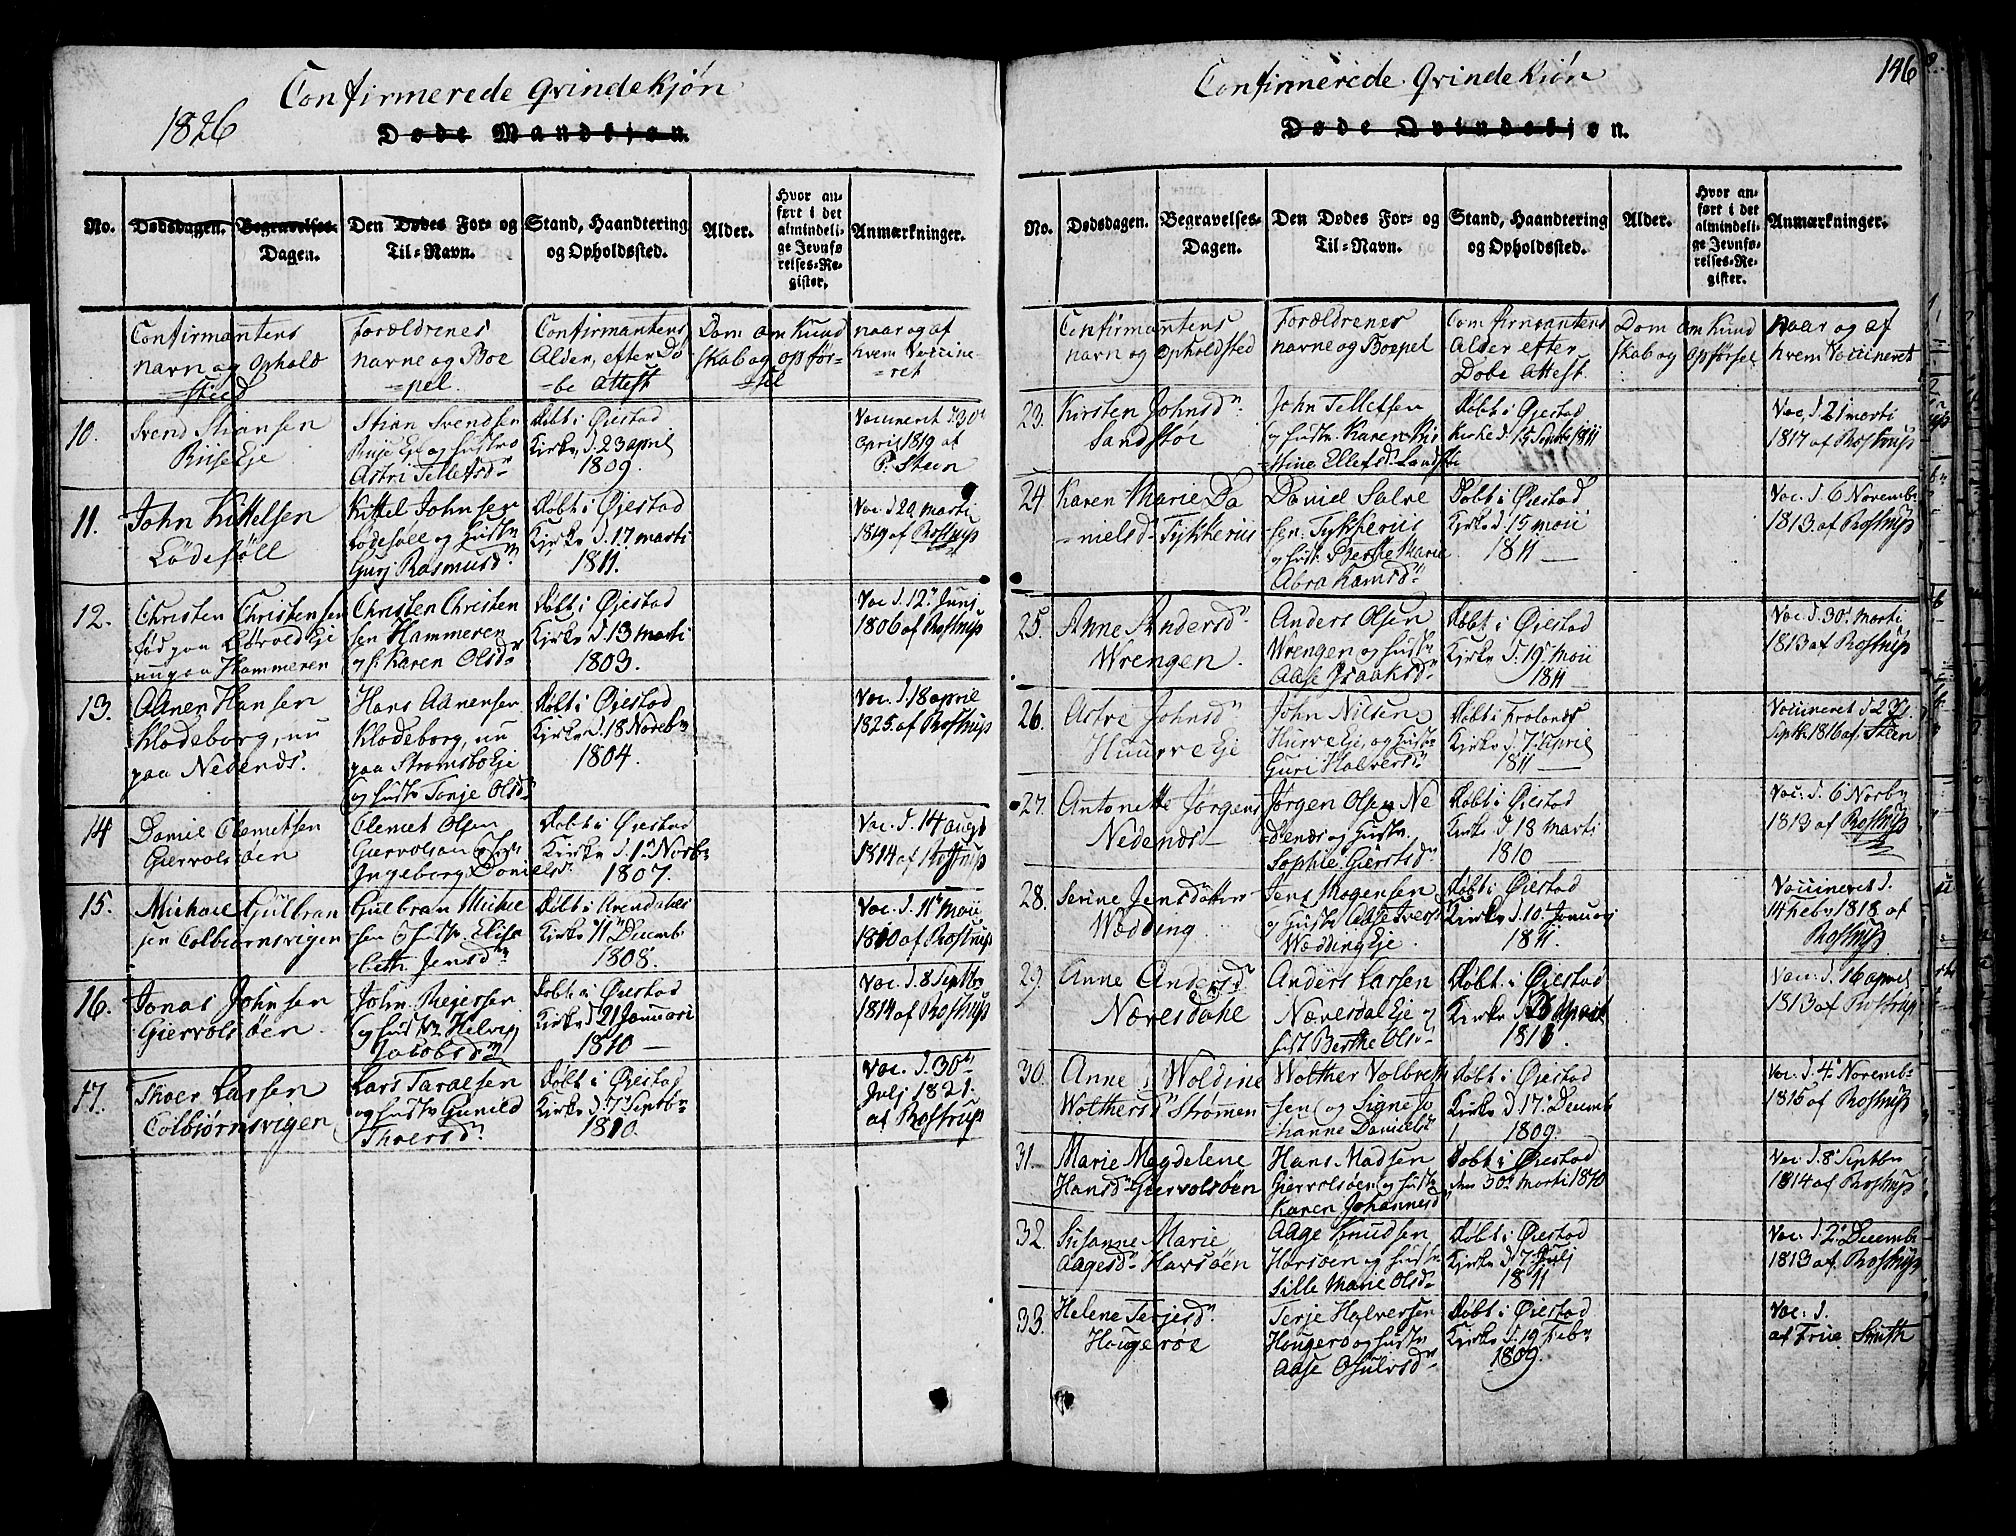 Confirmerede Qvindekjøn
1826
Døde Mandkjøn.
No.
Dødsdagen.
Begravelses-
Dagen.
Den Dødes For- og
Til-Navn.
Stand, Haandtering
og Opholdssted.
Alder.
Hvor an-
ført i det
almindeli-
ge Jevnfø-
relses-Re-
gister.
Anmærkninger.
Confirmantens
navn og Ophold
sted
Forældrenes
navne og Boe
=pel.
Confirmantens
Alder, efter Dø
=be Attest
Dom om Kund
skab og opfør-
=sel
naar og af
hvem Vaccine-
=ret
10.
Svend Stiansen
Riise Eje
Stian Svendsen
Riise Eje og hustro
Astri Tellefsdr
Døbt i Øiestad
Kirke d. 23 april
1809.
Vaccineret d. 30t
april 1819 af
P. Steen
11.
John Kittelsen
Lödesöll
Kittel Johnsen
Lodesöll og hustr
Gurj Rasmusdr
Døbt i Øjestad
Kirke d. 17 marti
1811.
Vac. d. 20 marti
1819 af Rostrup
12.
Christen Christensen
fød paa Lörvold Eje
nu paa Hammeren
Christen Christen
sen Hammeren
og h. Karen Olsdr
Døbt i Øjestad
Kirke d. 13 marti
1803.
Vac d. 12t Junj
1806 af Rostrup
13.
Aanen Hansen
Klodeborg, nu
paa Nedends.
Hans Aanensen
Klodeborg, nu
paa Strømsbo Eje
og hustr Tonje Olsdr
Døbt i Øjestad
Kirke d. 18 Novebr
1804.
Vac. d. 18 april
1825 af Rostrup
14
Daniel Clemetsen
Giervolsöen
Clemet Olsen
Giervolsöen og hustr
Ingeborg Danielsdr
Døbt i Øiestad
Kirke d. 1t Novbr
1807.
Vac. d. 14 augt
1814 af Rostrup
15.
Michael Gulbran
sen Colbiørnsvigen
Gulbran Michel
sen og hustr. Elisa
beth Jensdr
Døbt i Arendahls
Kirke 11t Decemb
1808.
Vac. d. 11t maii
1810 af Rostrup
16.
Jonas Johnsen
Giervolsöen.
John Reiersen
og hustr Helvig
Jacobsdr
Døbt i Øiestad
Kirke d 21 Januari
1810
Vac. d. 8 Septbr
1814 af Rostrup
17.
Thoer Larsen
Colbiørnsvigen
Lars Taraldsen
og hustr Gunild
Thoersdr
Døbt i Øiestad
Kirke d. 7t Septbr
1810.
Vac. d. 30t
Julj 1821.
af Rostrup
146
Confirmerede Qvindekiøn
Døde Qvindekjøn.
No.
Dødsdagen.
Begravelses-
Dagen.
Den Dødes For- og
Til-Navn.
Stand, Haandtering
og Opholdssted.
Alder.
Hvor an-
ført i det
almindeli-
ge Jevnfø-
relses-Re-
gister.
Anmærkninger.
Confirmantens
navn og opholdsted
Forældrenes
navne og Boepel
Confirmantens
Alder efter
Døbe Attest.
Dom om Kund
skab og opførsel
Naar og af
hvem Vaccineret
23.
Kirsten Johnsdr
Sandstöe
John Tellefsen
og hustr. Karen Kir
stine Ellefsdr
Døbt i Øiestad
Kirke d. 15 Septbr 1811
Vac d. 21 marti
1817 af Rostrup
24
Karen Marie Da
=nielsd Tykkeriis
Daniel Salve
sen Tykkeriis
og hustr. Berthe Marie
Abrahamsdr
Døbt i Øiestad
Kirke d. 15 maii
1811
Vac. d. 6 Novembr
1813. af Rostrup
25.
Anne Andersdr
Wrengen.
Anders Olsen
Wrengen og hustr
Aase Isaaksdr
Døbt i Øiestad
Kirke d. 19t maii
1811
Vac. d. 30t marti
1813 af Rostrup
26.
Astre Johnsdr
Huurve Eje
John Nilsen
Hurve Eje, og hustr
Guri Halversdr
Døbt i Frolands
Kirke d. 7t april
1811
Vaccineret d 23
Septbr 1816 af Steen
27.
Antonette Jørgens
Nedenæs
Jørgen Olsen Ne
denæs og hustr
Sophie Giertsdr
Døbt i Øiestad
Kirke d 18 marti
1810
Vac. d. 6t Novbr
1813 af Rostrup
28.
Serine Jensdatter
Wædding
Jens Mogensen
og hustr Aase Ivers
Wædding Eje.
Døbt i Øiestad
Kirke d. 10t Januarj
1811.
Vaccineret d.
14 Febr 1818 af
Rostrup
29.
Anne Andersd
Næresdahl
Anders Larsen
Næresdal Eje og
hust Berthe Olsdr
Døbt i Øiestad
Kirke d.
Vac. d. 16 april
1813 af Rostrup
30.
Anne Woldine
Wolthersdr Strømmen
Wolther Volbreth
sen og Signe Jo
hanne Danielsdr
Døbt i Øiestad
Kirke d 17t Decemb
1809.
Vac. d. 4t Novembr
1815 af Rostrup
31.
Marie Magdelene
Hansdr Giervolsöen
Hans Madsen
Giervolsöen og hustr
Karen Johannesd
Døbt i Øiestad
den 30t marti 1810
Vac. d. 8t Septbr
1814 af Rostrup
32.
Susanne Marie
Aagesdr Havsöen
Aage Knudsen
Havsöen og hustr
Sille Marie Olsdr
Døbt i Øiestad
Kirke d. 7t Julj
1811
Vac. d. 2t Decembr
1813 af Rostrup
33.
Helene Terjesdr
Hougeröe
Terje Halversen
Hougerö og hustr
Aase Osulvsdr
Døbt i Øiestad
Kirke d. 19 Febr
1809.
Vac. d.
af Frue Smith